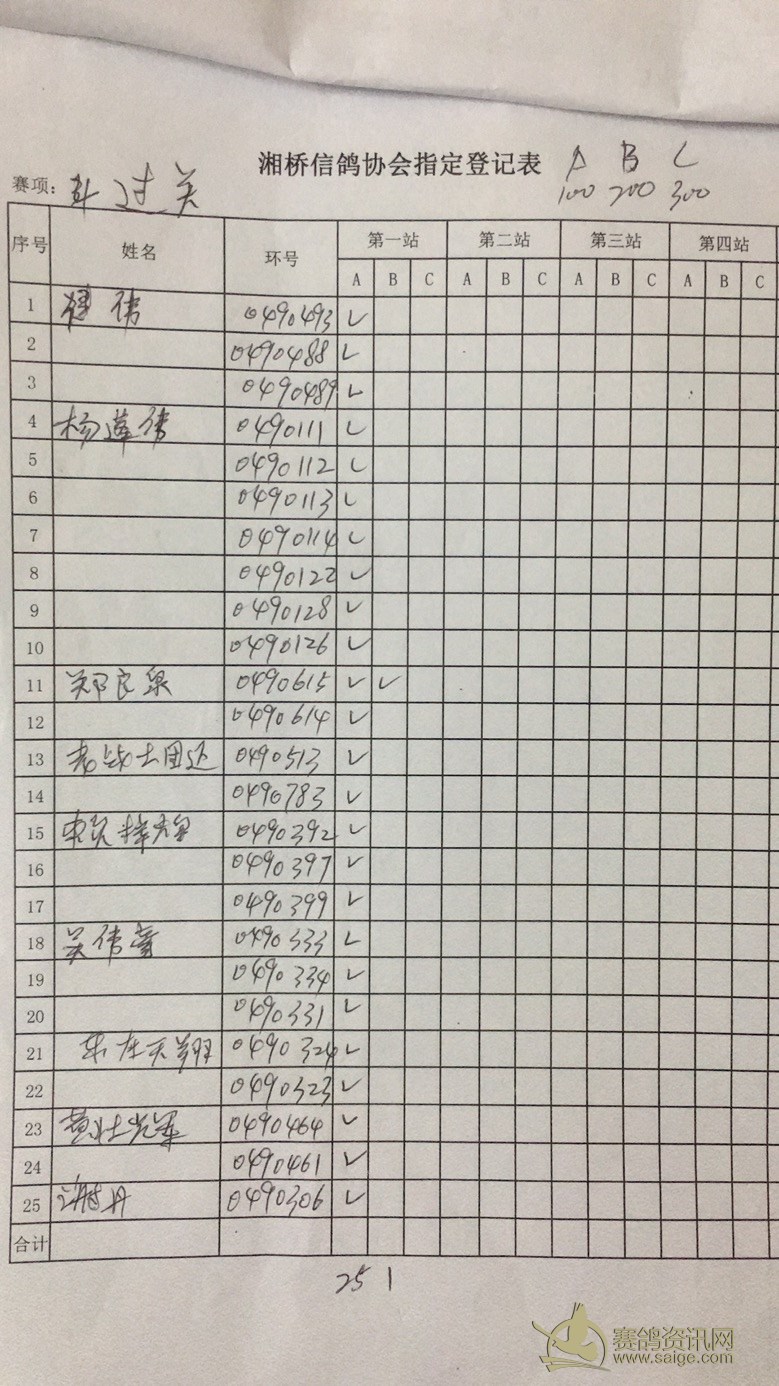 湘桥信鸽协会指定登记表 A B C
赛项: 过关 100 200 300
序号 姓名 环号 第一站 第二站 第三站 第四站
A B C A B C A B C A B C
1 伟 0490493 ✓
2 0490488 ✓
3 0490489 ✓
4 杨莲伟 0490111 ✓
5 0490112 ✓
6 0490113 ✓
7 0490114 ✓
8 0490122 ✓
9 0490128 ✓
10 0490126 ✓
11 郑良泉 0490615 ✓ ✓
12 0490614 ✓
13 老战士团队 0490513 ✓
14 0490783 ✓
15 赖梓 0490392 ✓
16 0490397 ✓
17 0490399 ✓
18 吴伟 0490333 ✓
19 0490334 ✓
20 0490331 ✓
21 天翔 0490324 ✓
22 0490323 ✓
23 黄壮 0490464 ✓
24 0490461 ✓
25 谢丹 0490306 ✓
合计
25 1
赛鸽资讯网
www.saige.com